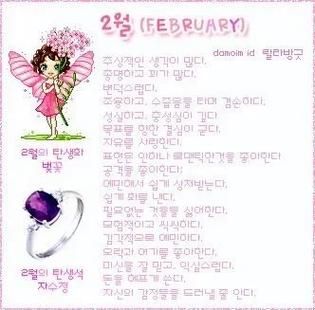 2월 (FEBRUARY)
damoim id 릴리방긋
추상적인 생각이 많다.
총명하고 꾀가 많다.
변덕스럽다.
조용하고, 수줍음을 타며 겸손하다.
성실하고, 충성심이 깊다.
목표를 향한 결심이 굳다.
자유를 사랑한다.
표현은 안하나 로맨틱한것을 좋아한다
공격을 좋아한다.
예민해서 쉽게 상처받는다.
쉽게 화를 낸다.
필요없는 것들을 싫어한다.
모험적이고 씩씩하다.
감각적으로 예민하다.
오락과 여기를 좋아한다.
미신을 잘 믿고, 익살스럽다.
돈을 헤프게 쓴다.
자신의 감정들을 드러낼 줄 안다.
2월의 탄생화
벚꽃
2월의 탄생석
자수정